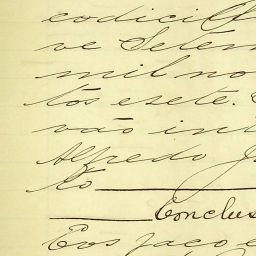 codicil
ve Setem
mil no
tos e sete.
vão int
Alfredo
to
Conclus
Eos faço c